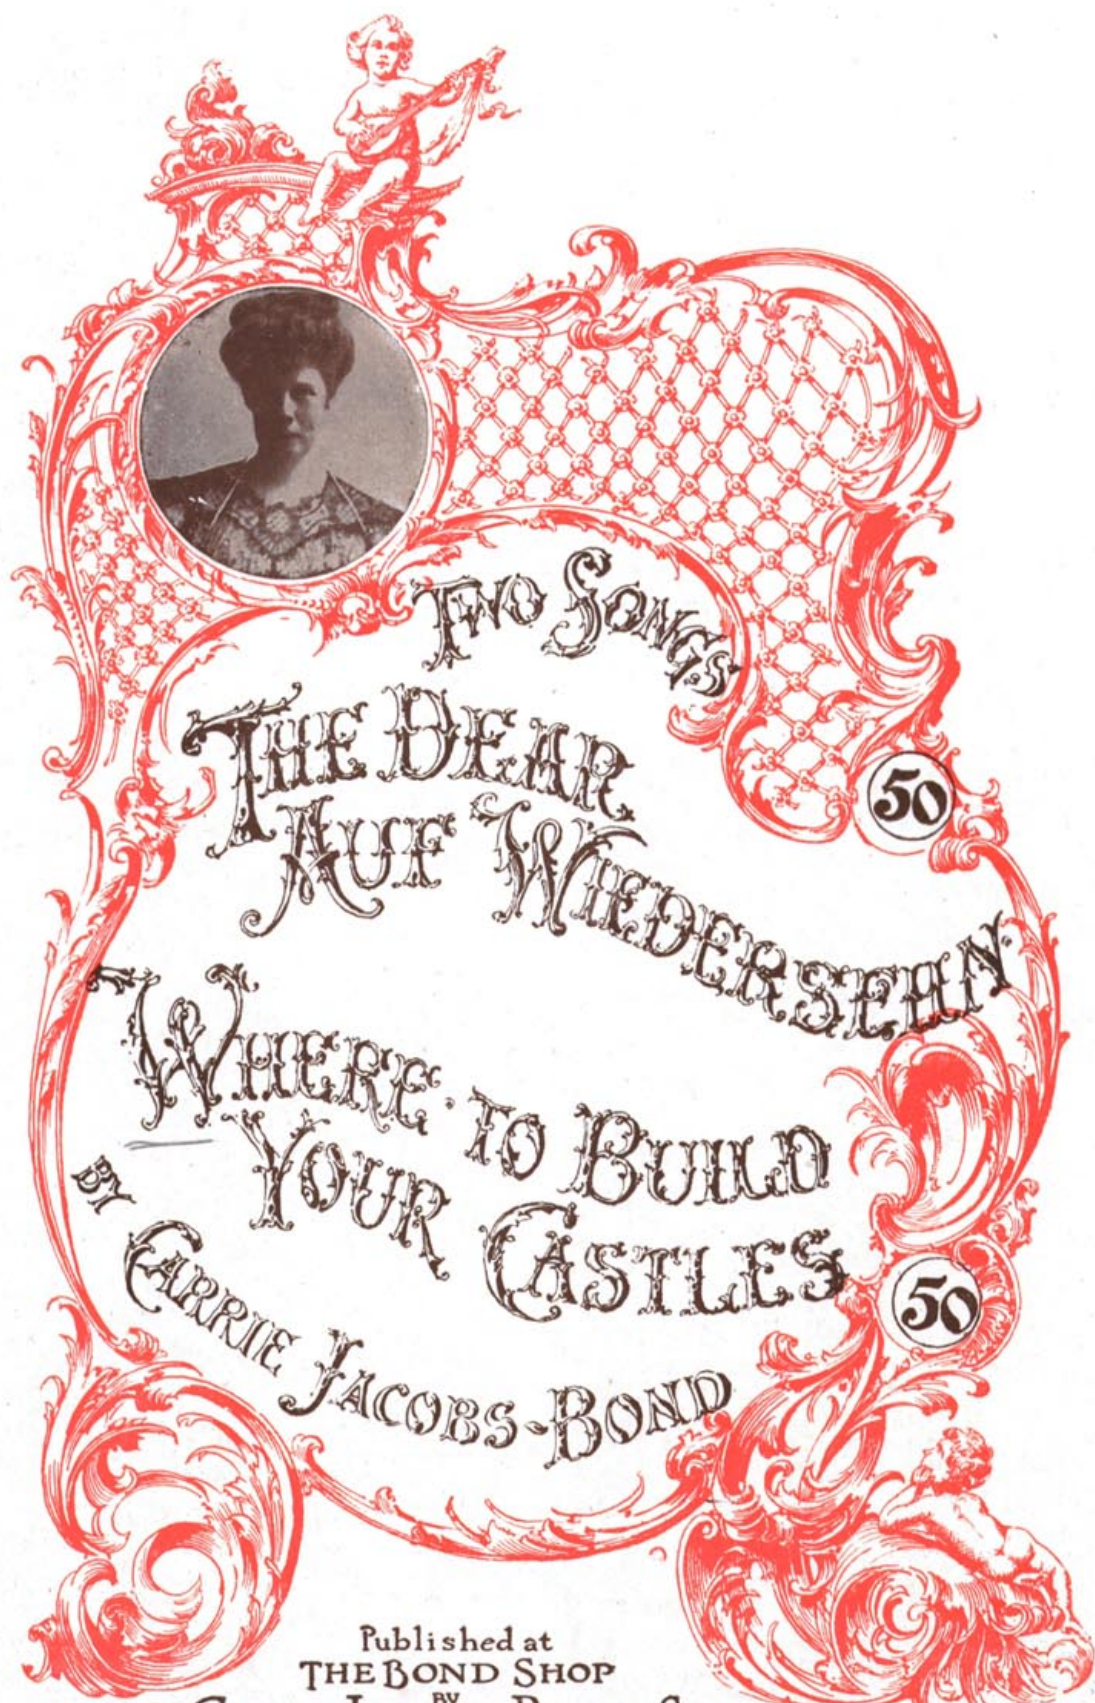 TWO SONGS
THE DEAR
AUF WIEDERSEHN
50
WHERE TO BUILD
YOUR CASTLES
50
BY CARRIE JACOBS-BOND
Published at
THE BOND SHOP
BY